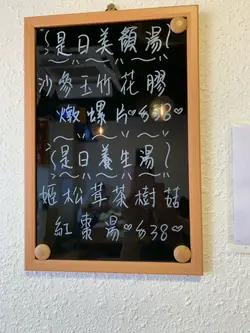 是日美顏湯
沙參玉竹花膠
燉螺片$38
是日養生湯
姬松茸茶樹菇
紅棗湯$38